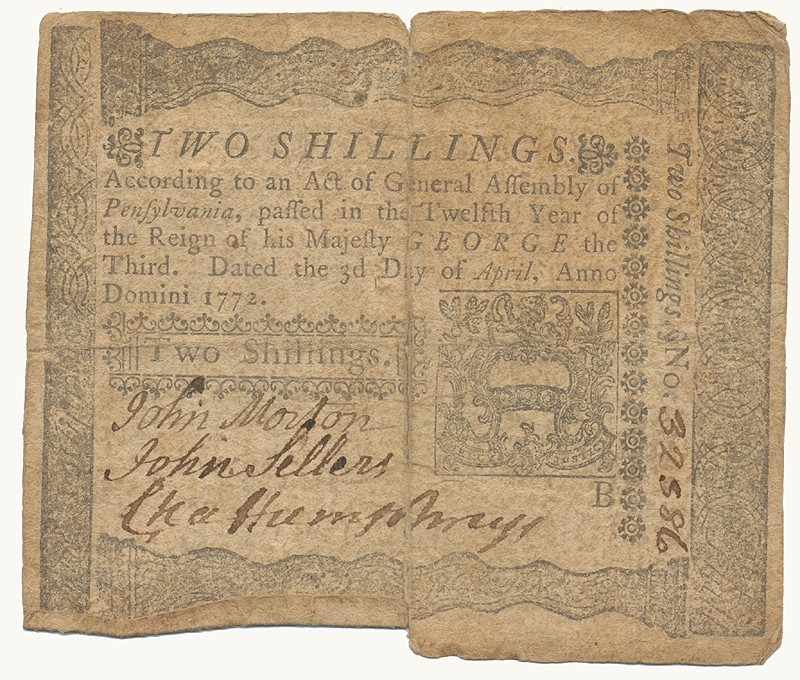 TWO SHILLINGS.
According to an Act of General Aſſembly of
Penſylvania, paſſed in the Twelfth Year of
the Reign of his Majeſty GEORGE the
Third. Dated the 3d Day of April, Anno
Domini 1772.
Two Shillings.
John Morton
John Sellers
Cha Humphreys
B
Two Shillings. No. 37586